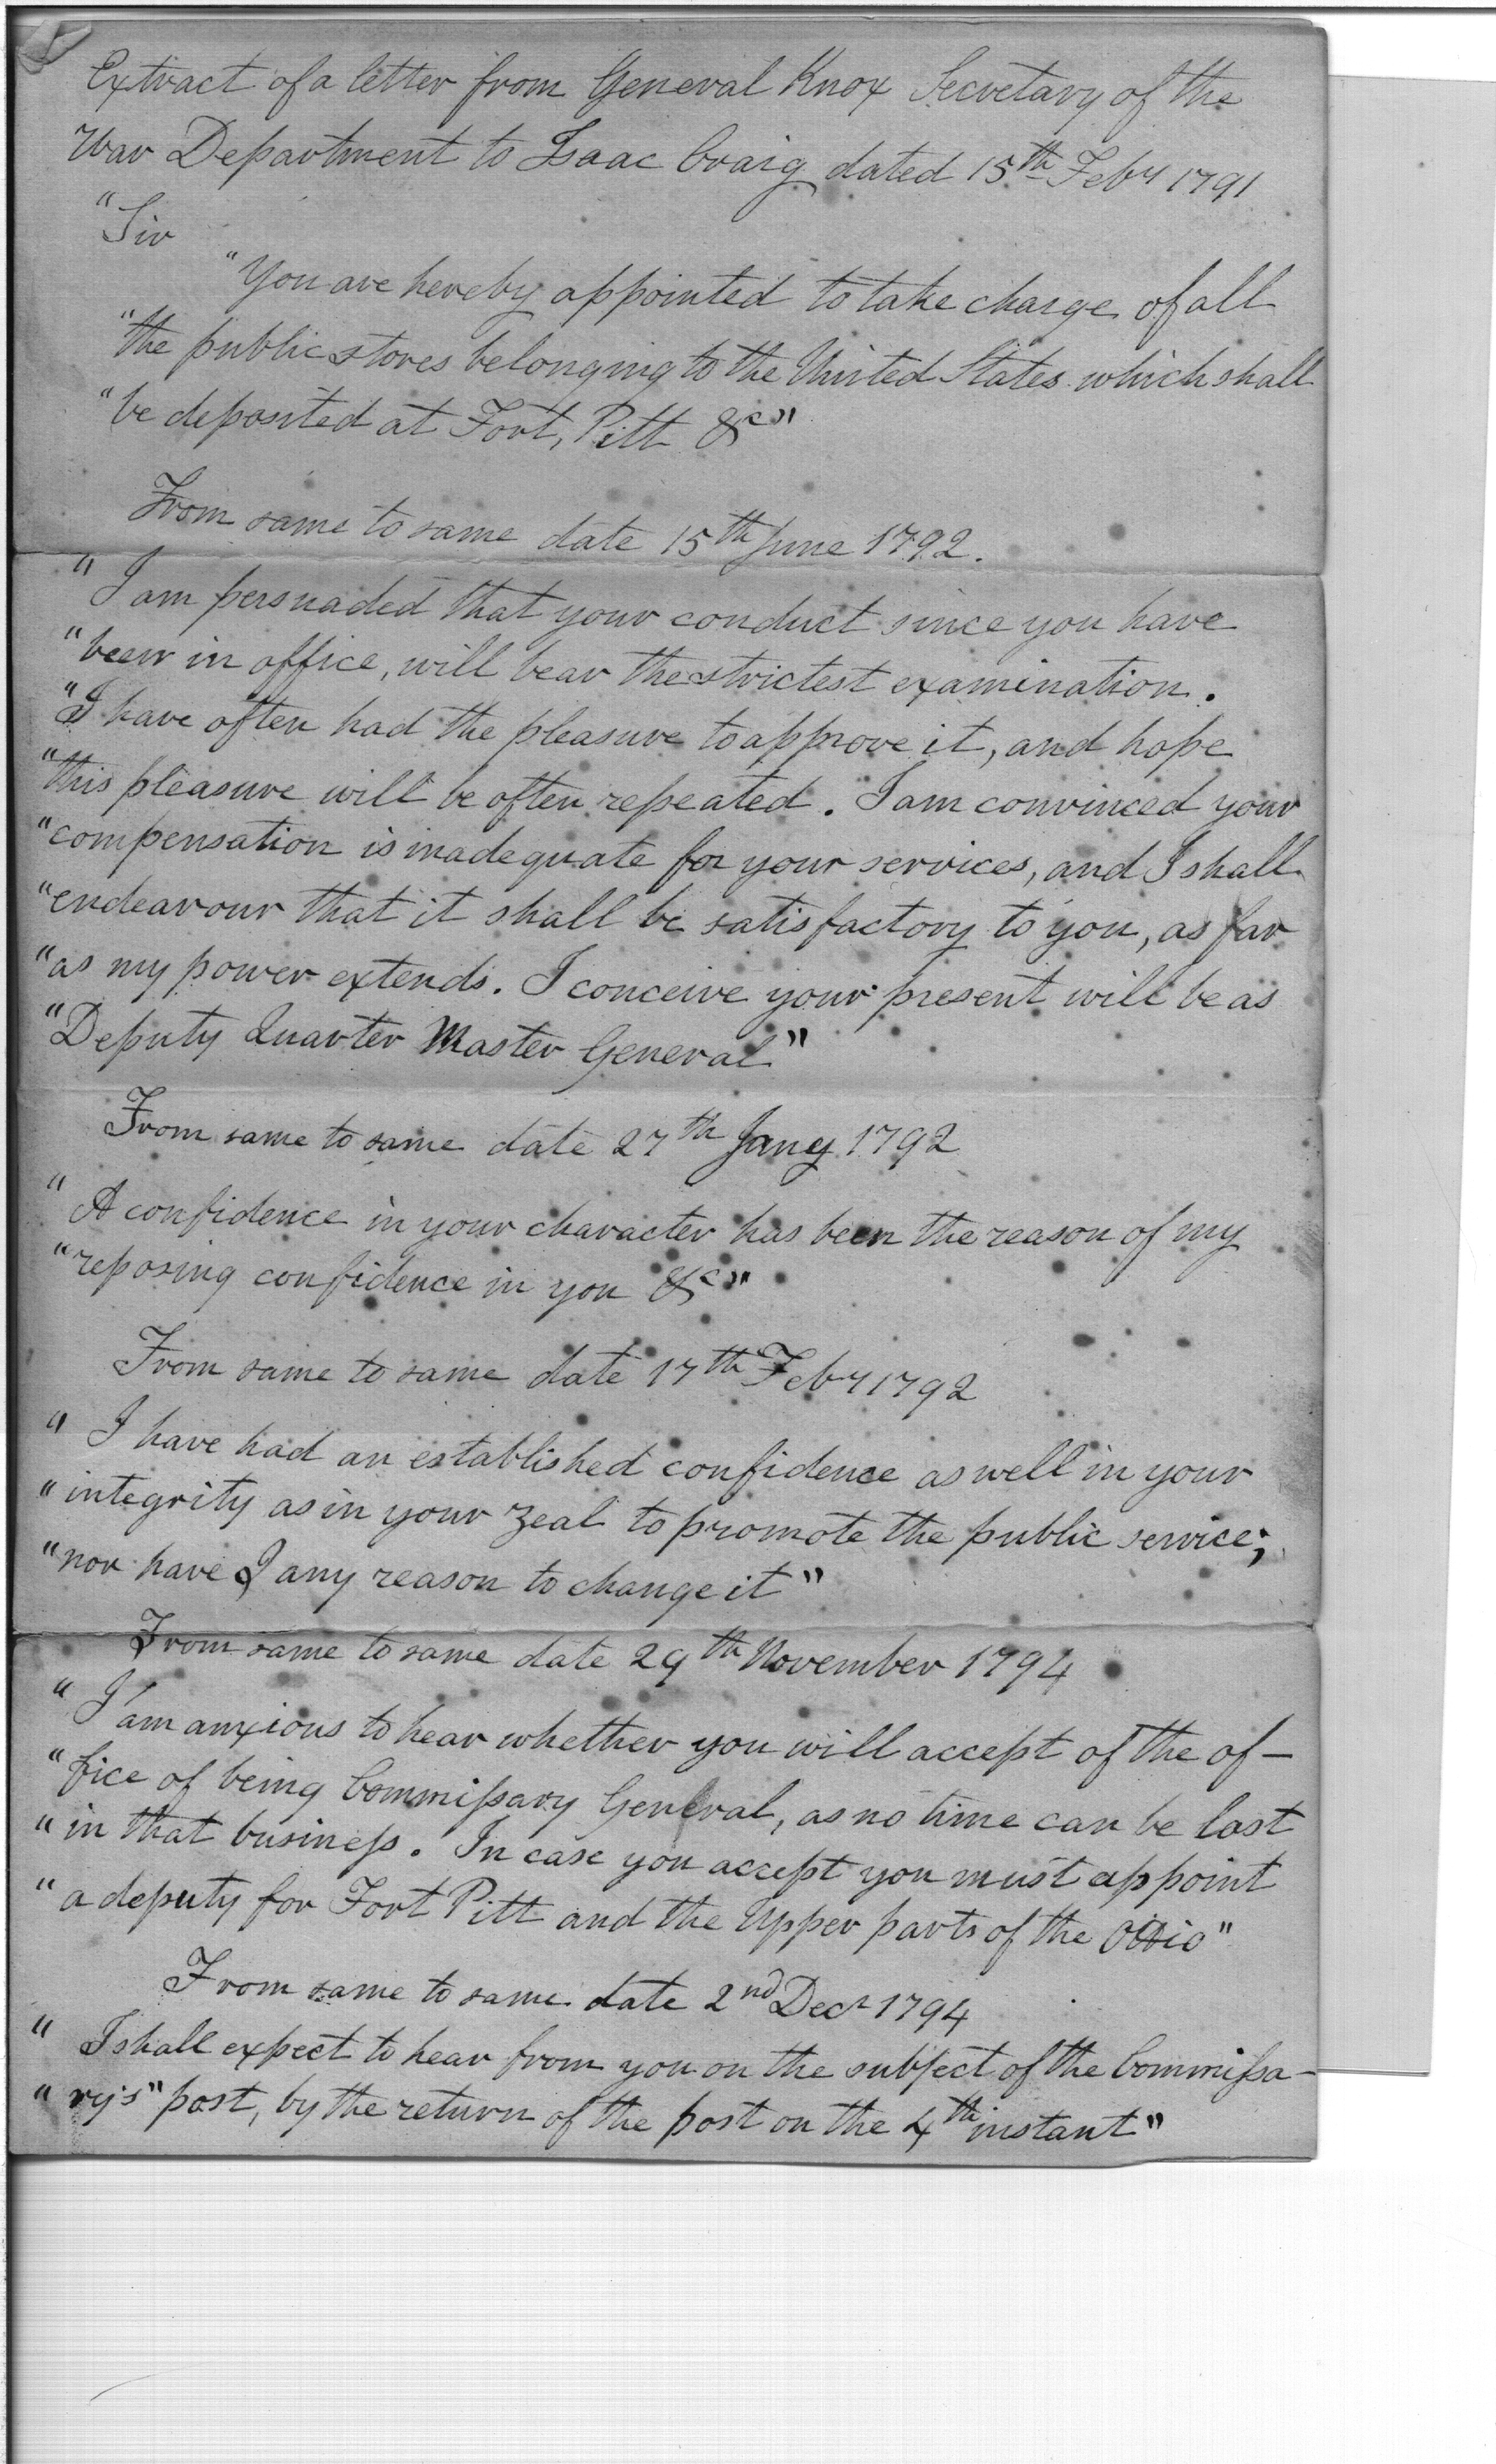 Extract of a letter from General Knox Secretary of the
War Department to Isaac Craig dated 15th Feby 1791
"Sir
"You are hereby appointed to take charge of all
"the public stores belonging to the United States which shall
"be deposited at Fort, Pitt &c"
From same to same date 15th June 1792.
"I am persuaded that your conduct since you have
"been in office, will bear the strictest examination.
"I have often had the pleasure to approve it, and hope
"this pleasure will be often repeated. I am convinced your
"compensation is inadequate for your services, and I shall
"endeavour that it shall be satisfactory to you, as far
"as my power extends. I conceive your present will be as
"Deputy Quarter Master General"
From same to same date 27th Jany 1792
"A confidence in your character has been the reason of my
"reposing confidence in you &c"
From same to same date 17th Feby 1792
"I have had an established confidence as well in your
"integrity as in your zeal to promote the public service;
"nor have I any reason to change it"
From same to same date 29th November 1794
"I am anxious to hear whether you will accept of the of-
"fice of being Commissary General, as no time can be lost
"in that business. In case you accept you must appoint
"a deputy for Fort Pitt and the Upper parts of the Ohio"
From same to same date 2nd Decr 1794
"I shall expect to hear from you on the subject of the Commissa-
"ry's" post, by the return of the post on the 4th instant"